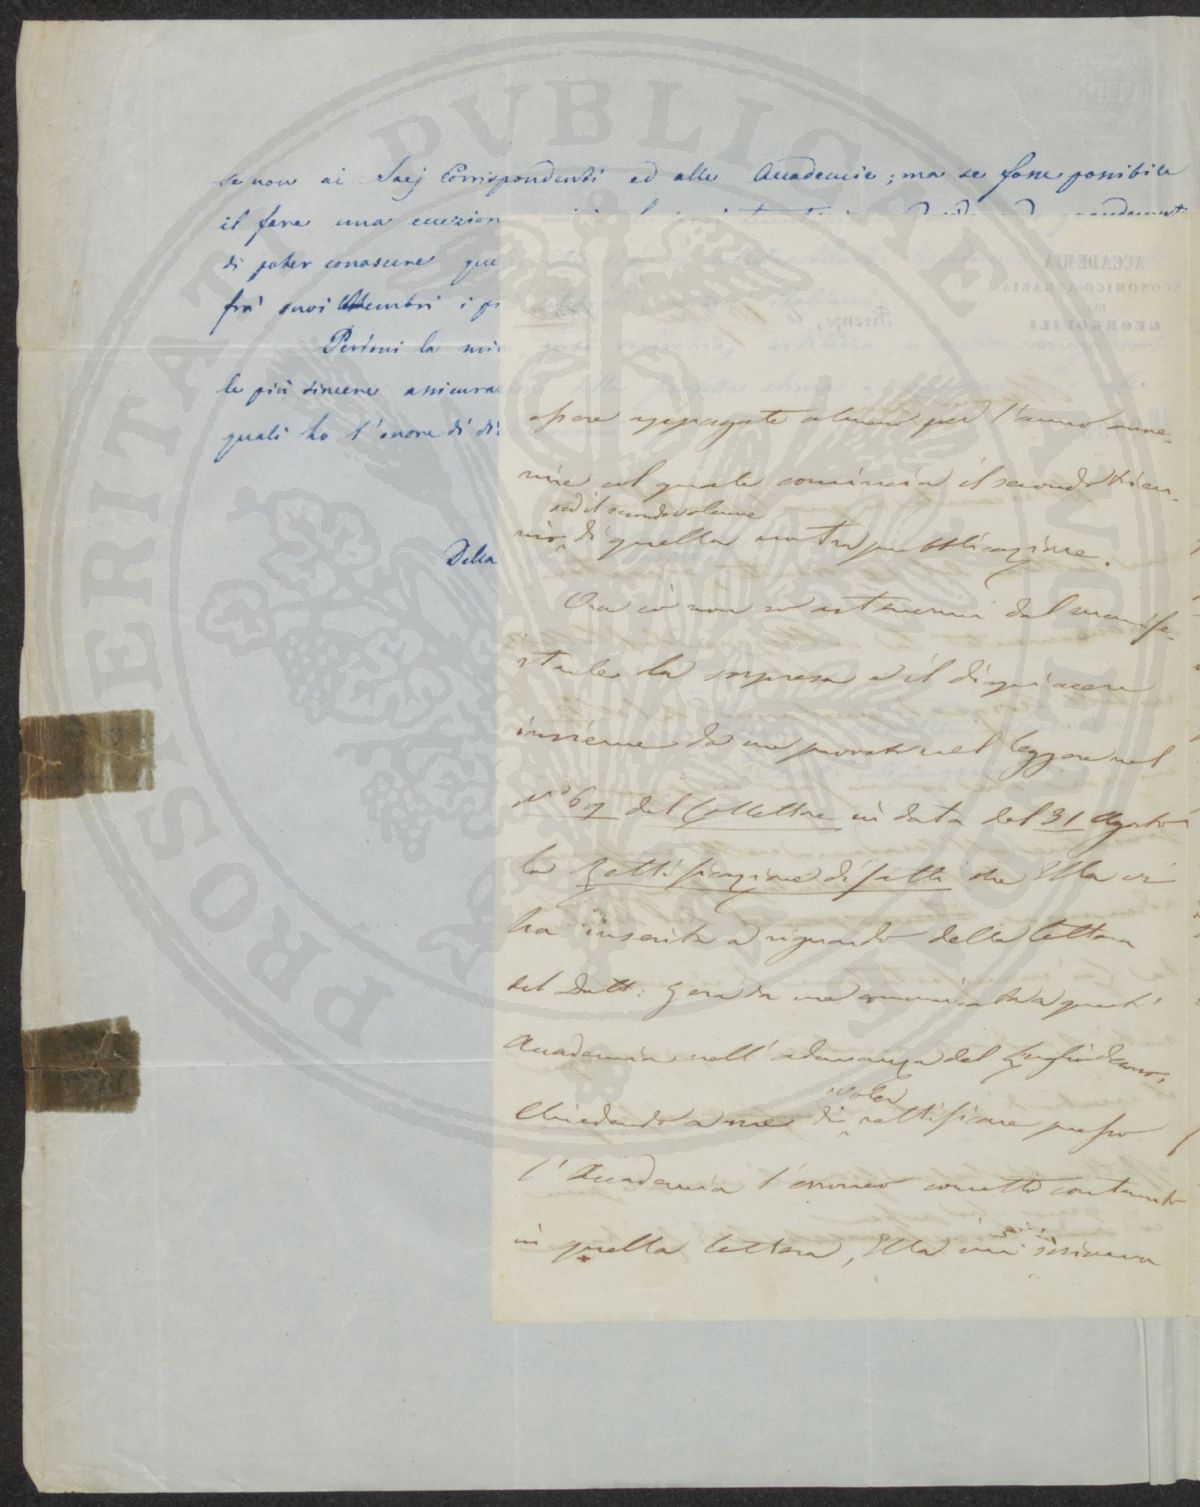 se non ai Socj Corrispondenti ed alle Accademie; ma se fosse possibile
il fare una eccezion
di poter conoscere que
fra' suoi Membri i p
Perdoni la mi
le più sincere assicura
quali ho l'onore di di
Della
essere appagato almeno per l'anno avve-
nire col quale comincia il secondo trien-
ed il secondo volume
nio di quella nostra pubblicazione.
Ora io non so astenermi dal manife-
starle la sorpresa e il dispiacere
insieme da me provato nel leggere nel
N.º 67 del Collettore in data del 31 Agosto
la Rettificazione di fatti che Ella vi
ha inserita a riguardo della lettera
del Dott: Gera da me comunicata a quest'
Accademia nell' adunanza del Luglio decorso,
Chiedendo a me di
voler
rettificare presso
l'Accademia l'erroneo concetto contenuto
in quella lettera, Ella mi scriveva
ACCADEMIA
ECONOMICO-AGRARIA
DEI
GEORGOFILI
Firenze, li
PROSPERITATI PVBLICAE AVGENDAE